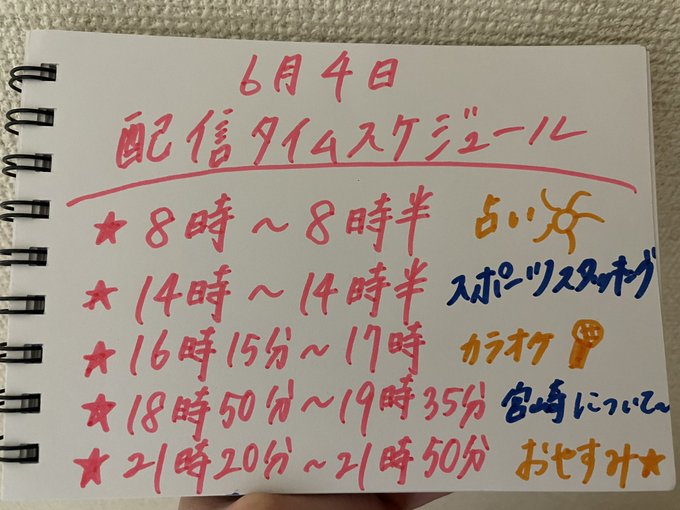 6月4日
配信タイムスケジュール
★8時～8時半 占い
★14時～14時半 スポーツスタッキング
★16時15分～17時 カラオケ
★18時50分～19時35分 宮崎について～
★21時20分～21時50分 おやすみ★